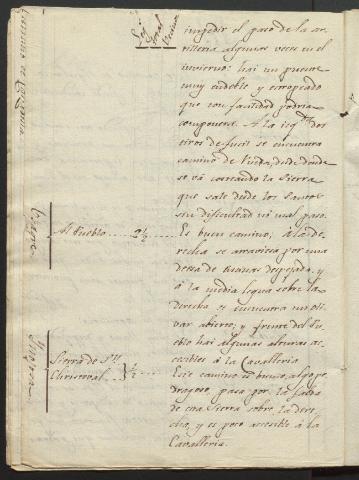 impedir el paso de la ar-
tilleria algunas veces en el
invierno: hai un puente
muy endeble y estropeado
que con facilidad podria
componerse. A la izq.da dos
tiros de fusil se encuentra
camino de desde donde
se vá costeando la Sierra
que sale desde los
sin dificultad ni mal paso.
Al Pueblo .... 2½ ....... Es buen camino; á la de-
recha se atraviesa por una
de despejada, y
á la media legua sobre la
derecha se encuentra un oli-
var abierto; y frente del Pu-
eblo hai algunas alturas ac-
cesibles á la Cavalleria.
Sierra de S.n
Christoval ...} ½ .... Este camino es bueno, algo pe-
dregoso, pasa por la falda
de una Sierra sobre la dere-
cha, y es poco accesible á la
Cavalleria.